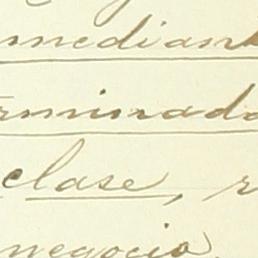 mediant
rminado
clase, r
negocio.